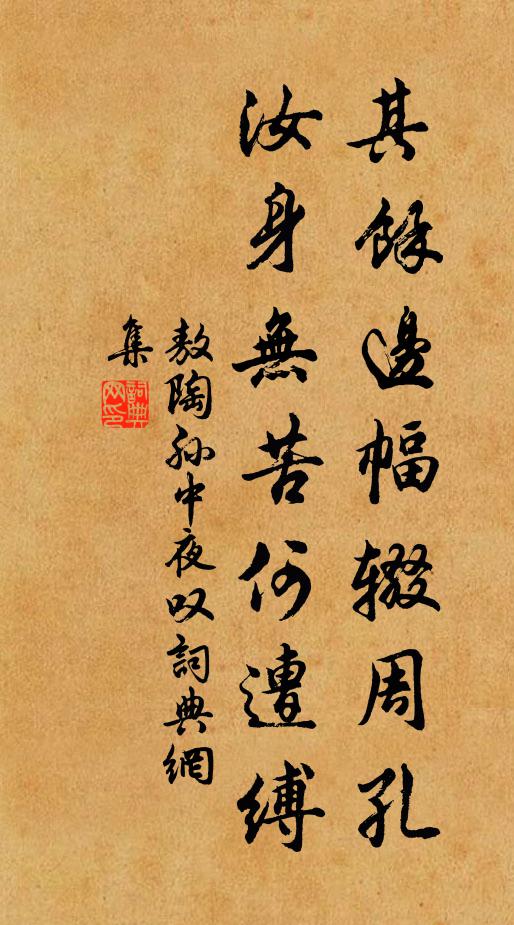 其餘邊幅辍周孔
汝身無苦何遭縛
敖陶孙中夜叹詞典網
集
詞典
网印